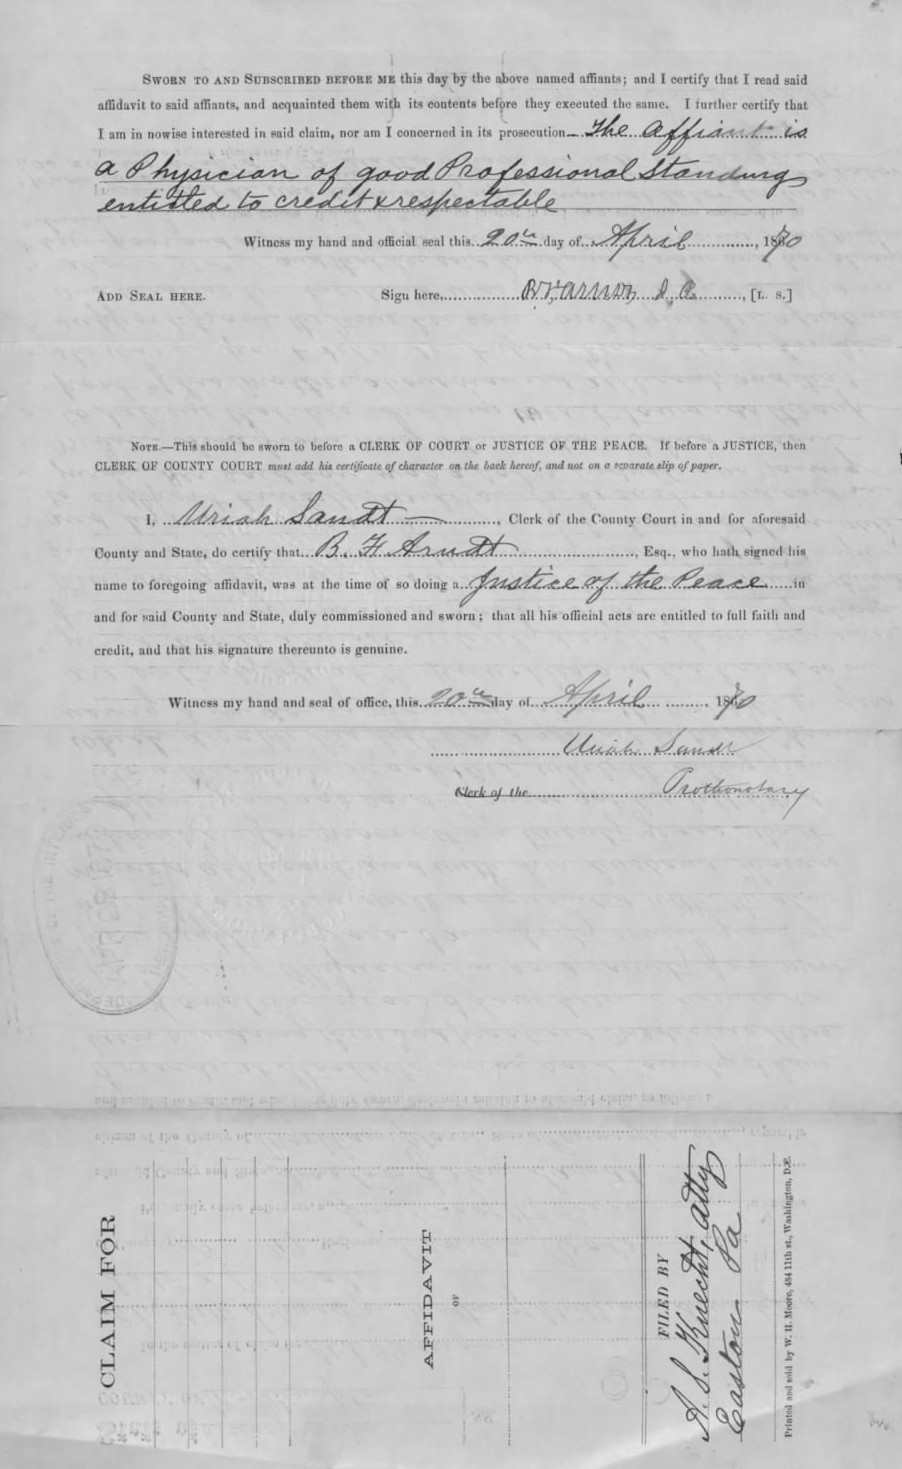 SWORN TO AND SUBSCRIBED BEFORE ME this day by the above named affiants; and I certify that I read said
affidavit to said affiants, and acquainted them with its contents before they executed the same. I further certify that
I am in nowise interested in said claim, nor am I concerned in its prosecution The Affiant is
a Physician of good Professional Standing
entitled to credit & respectable
Witness my hand and official seal this 20th day of April, 1870
ADD SEAL HERE. Sign here, [L. S.]
NOTE.—This should be sworn to before a CLERK OF COURT or JUSTICE OF THE PEACE. If before a JUSTICE, then
CLERK OF COUNTY COURT must add his certificate of character on the back hereof, and not on a separate slip of paper.
I, Uriah Sandt, Clerk of the County Court in and for aforesaid
County and State, do certify that B. F. Arndt, Esq., who hath signed his
name to foregoing affidavit, was at the time of so doing a Justice of the Peace in
and for said County and State, duly commissioned and sworn; that all his official acts are entitled to full faith and
credit, and that his signature thereunto is genuine.
Witness my hand and seal of office, this 20th day of April, 1870
Uriah Sandt
Clerk of the Prothonotary
CLAIM FOR
AFFIDAVIT
OF
FILED BY
A. S. Knecht, atty
Easton Pa
Printed and sold by W. H. Moore, 484 11th st., Washington, D.C.